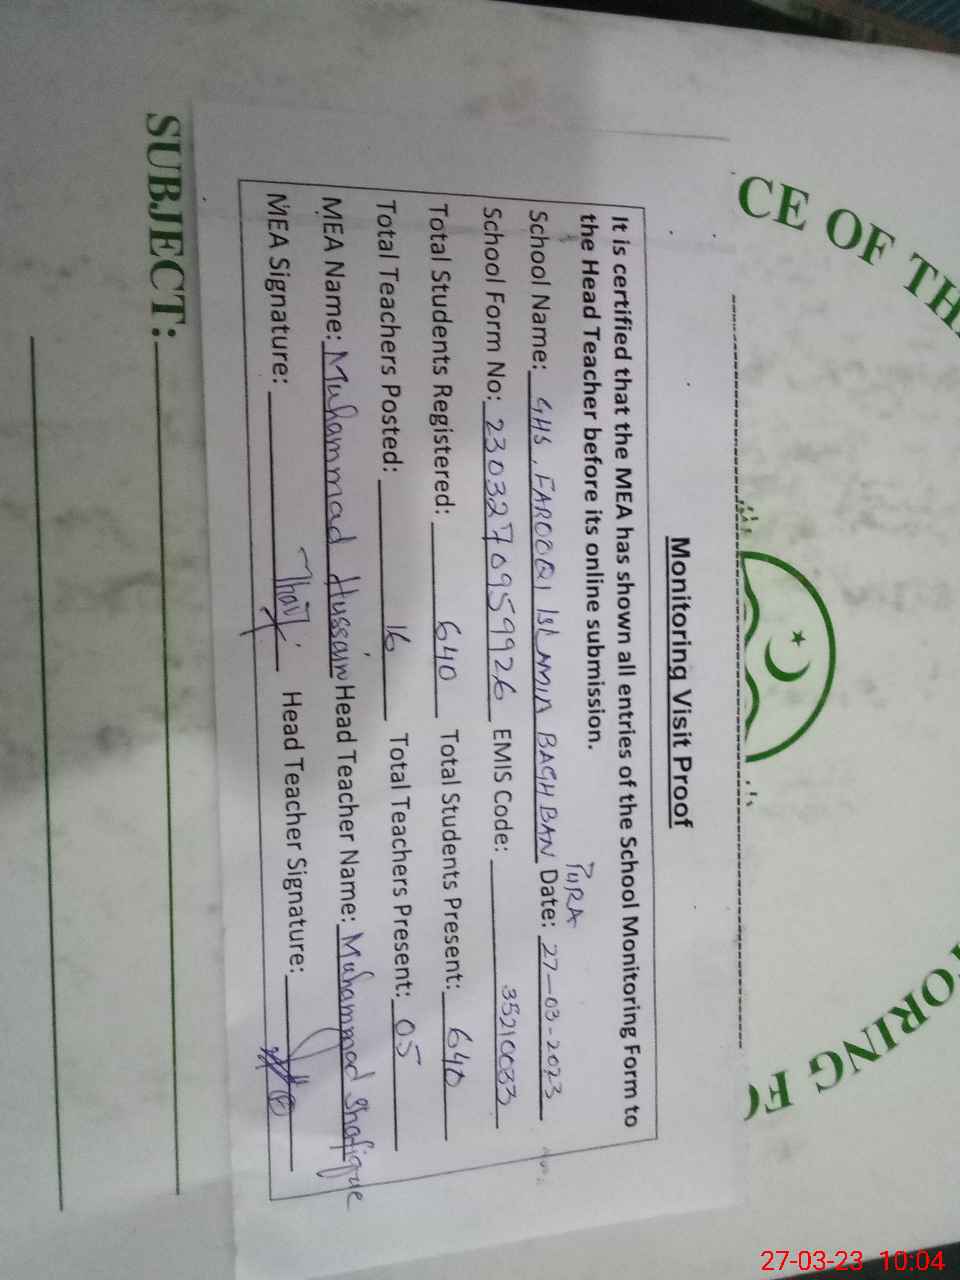 CE OF TH
ORING F
Monitoring Visit Proof
It is certified that the MEA has shown all entries of the School Monitoring Form to
the Head Teacher before its online submission.
PURA
School Name: GHS, FAROOQI ISLAMIA BAGHBAN Date: 27-03-2023
School Form No: 2303270959926 EMIS Code: 35210033
Total Students Registered: 640 Total Students Present: 640
Total Teachers Posted: 16 Total Teachers Present: 05
MEA Name: Muhammad Hussain Head Teacher Name: Muhammad Shafique
MEA Signature: Head Teacher Signature:
SUBJECT:
27-03-23 10:04